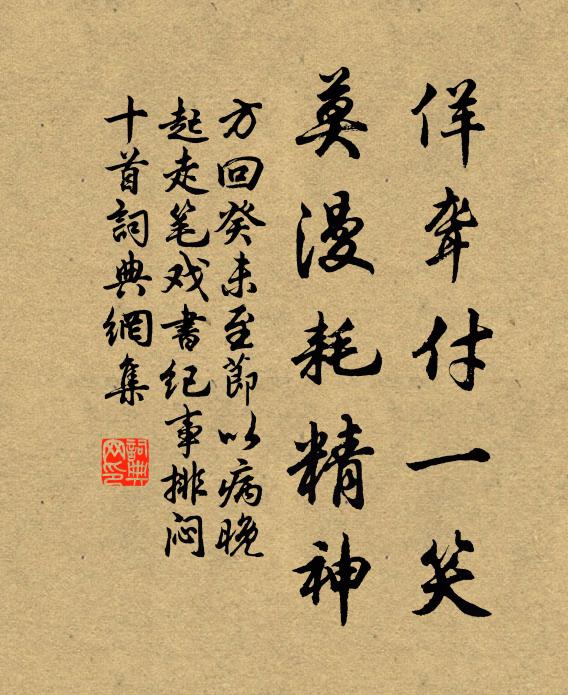 佯聋付一笑
莫漫耗精神
方回癸未至節以病晚
起走笔戏書纪事排闷
十首詞典網集
詞典
网印